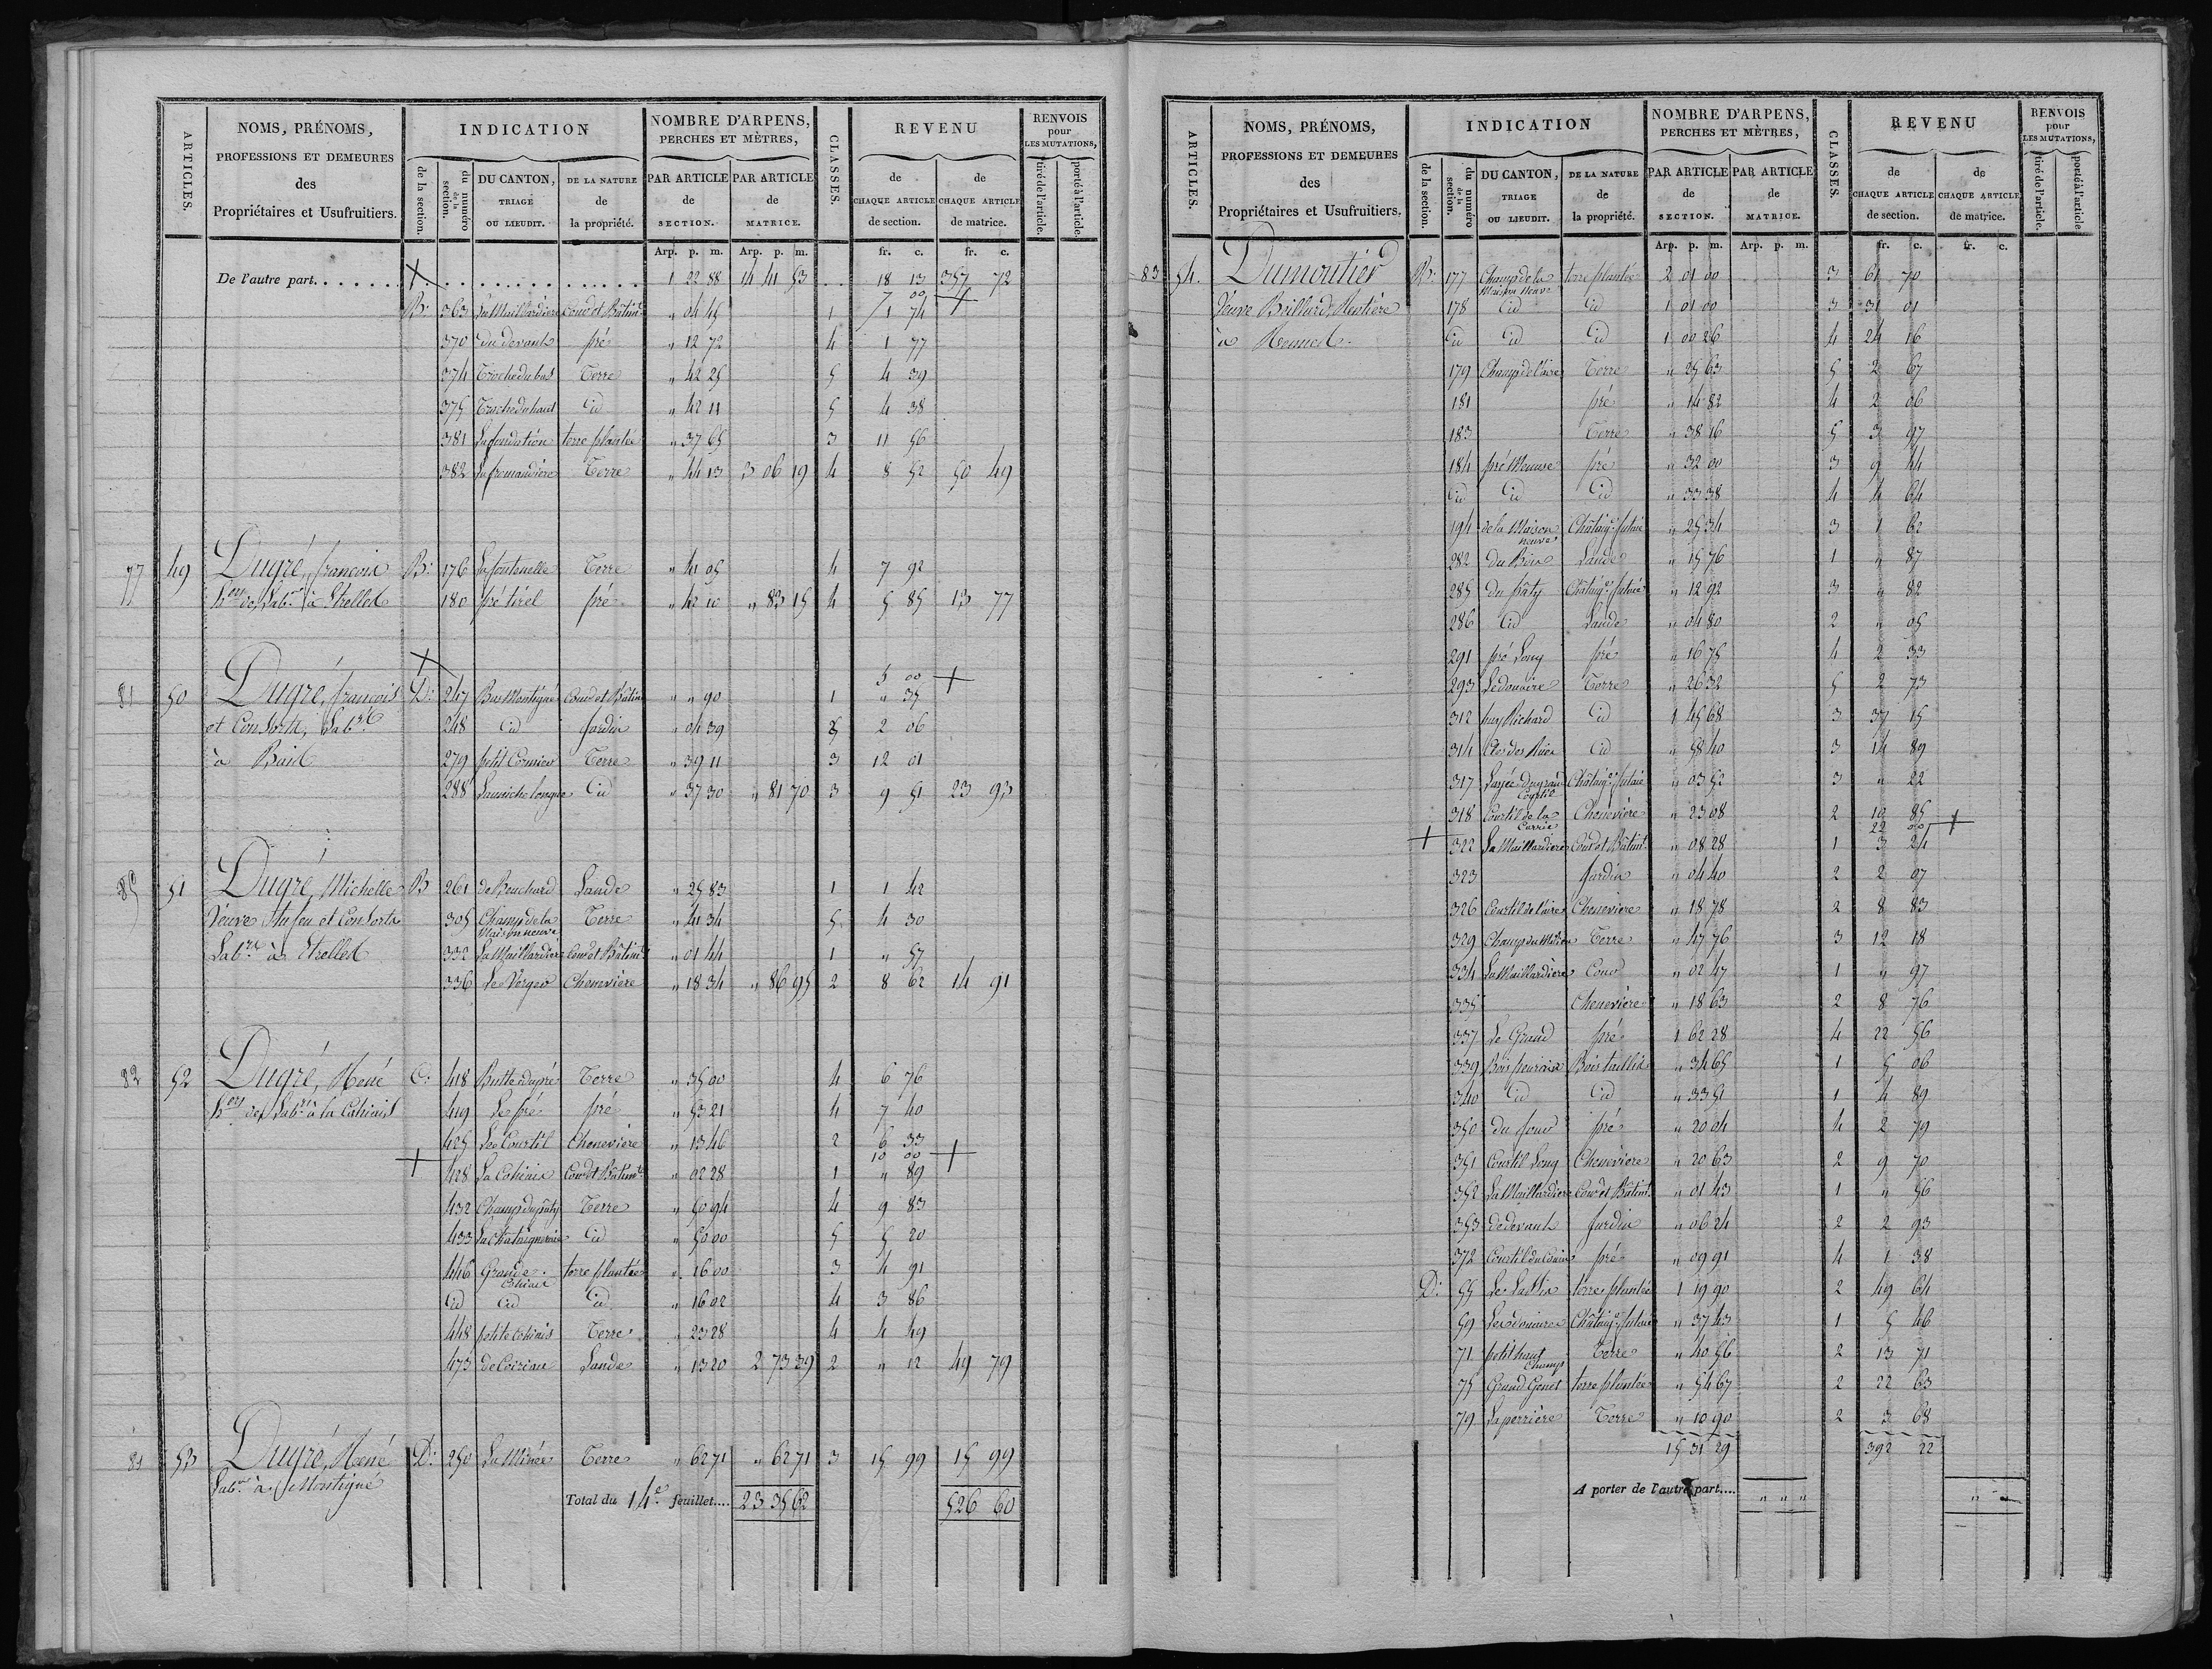 ARTICLES.
NOMS, PRÉNOMS,
PROFESSIONS ET DEMEURES
des
Propriétaires et Usufruitiers.
INDICATION
de la section.
du numéro de la section.
DU CANTON, TRIAGE OU LIEUDIT.
DE LA NATURE de la propriété.
NOMBRE D'ARPENS, PERCHES ET MÈTRES,
PAR ARTICLE de SECTION.
PAR ARTICLE de MATRICE.
CLASSES.
REVENU
de CHAQUE ARTICLE de section.
de CHAQUE ARTICLE de matrice.
RENVOIS pour LES MUTATIONS,
tiré de l'article.
porté à l'article.
Arp. p. m. Arp. p. m. fr. c. fr. c.
De l'autre part....... + 1 22 88 14 41 53 18 13 357 72
7 00 +
B: 363 La Maillardiere Cour et Bâtimt " 04 45 1 1 74
370 du devant pré " 12 72 4 1 77
374 Troche du bas Terre " 42 25 5 4 39
375 Troche du haut Id " 42 11 5 4 38
381 La fondation terre plantée " 37 65 3 11 56
382 La fromandiere Terre " 44 13 3 06 19 4 8 52 50 49
77 49 Dugré, françois B: 176 La fontenelle Terre " 41 05 4 7 92
hers de, Labr à Etrelles 180 pré tirel pré " 42 10 " 83 15 4 5 85 13 77
+ 5 00 +
81 50 Dugré, françois D: 247 Bas Montigné Cour et Bâtim " " 90 1 " 35
et Consorts, Labrs 248 Id Jardin " 04 39 2 06
à Bais 279 petit Cormier Terre " 39 11 3 12 01
288 Lauriche longue Id " 37 30 " 81 70 3 9 51 23 93
85 51 Dugré, Michelle B 261 de Bouchard Lande " 25 83 1 1 42
Veuve Aufeu et Consorts 305 Champ de la Maison neuve Terre " 41 34 5 4 30
Labrs à Etrelles 332 La Maillardiere Cour et Bâtimt " 01 44 1 " 57
336 Le Verger Cheneviere " 18 34 " 86 95 2 8 62 14 91
82 52 Dugré, René C: 418 Butte du pré Terre " 35 00 4 6 76
hers de, Labr à la Cohiais 419 Le pré pré " 53 21 4 7 40
425 Le Courtil Cheneviere " 13 46 2 6 33
10 00 +
+ 428 La Cohiais Cour et Bâtimt " 02 28 1 " 89
432 Champ du pâty Terre " 50 94 4 9 83
433 La Chataigneraie Id " 50 00 5 5 20
446 Grande Cohiais terre plantée " 16 00 3 4 91
Id Id Id " 16 02 4 3 86
448 petite Cohiais Terre " 23 28 4 4 49
473 de Coiriau Lande " 13 20 2 73 39 2 " 12 49 79
81 53 Dugré, René D: 250 La Minée Terre " 62 71 " 62 71 3 15 99 15 99
Labr à Montigné
Total du 14e feuillet.... 23 35 62 526 60
ARTICLES.
NOMS, PRÉNOMS,
PROFESSIONS ET DEMEURES
des
Propriétaires et Usufruitiers.
INDICATION
de la section.
du numéro de la section.
DU CANTON, TRIAGE OU LIEUDIT.
DE LA NATURE de la propriété.
NOMBRE D'ARPENS, PERCHES ET MÈTRES,
PAR ARTICLE de SECTION.
PAR ARTICLE de MATRICE.
CLASSES.
REVENU
de CHAQUE ARTICLE de section.
de CHAQUE ARTICLE de matrice.
RENVOIS pour LES MUTATIONS,
tiré de l'article.
porté à l'article
Arp. p. m. Arp. p. m. fr. c. fr. c.
83 54. Dumoutier B: 177 Champ de la Maison Neuve terre plantée 2 01 00 3 61 70
Veuve Brillard Rentière 178 Id Id 1 01 00 3 31 01
à Rennes. Id Id Id 1 00 26 4 24 16
179 Champ de l'aire Terre " 25 63 5 2 67
181 pré " 14 82 4 2 06
183 Terre " 38 16 5 3 97
184 pré Meuse pré " 32 00 3 9 44
Id Id Id " 33 38 4 4 64
194 de la Maison neuve Châtaigr futaie " 25 34 3 1 62
282 du Bois Lande " 15 76 1 " 87
285 du pâty Châtaigr futaie " 12 92 3 " 82
286 Id Lande " 04 80 2 " 05
291 pré Long pré " 16 75 4 2 33
293 Ledouaire Terre " 26 32 5 2 73
312 huy Richard Id 1 45 68 3 37 15
314 Clos des Rues Id " 58 40 3 14 89
317 Larjée du grand Courtil Châtaigr futaie " 03 52 3 " 22
318 Courtil de la Carrie Cheneviere " 23 08 2 10 85
22 00 +
+ 322 La Maillardiere Cour et Bâtimt " 08 28 1 3 24
323 Jardin " 04 40 2 2 07
326 Courtil de l'aire Cheneviere " 18 78 2 8 83
329 Champ du Milieu Terre " 47 76 3 12 18
334 La Maillardiere Cour " 02 47 1 " 97
335 Cheneviere " 18 63 2 8 76
337 Le Grand pré 1 62 28 4 22 56
339 Bois fleuriais Bois taillis " 34 65 1 5 06
340 Id Id " 33 51 1 4 89
350 du four pré " 20 04 4 2 79
351 Courtil Long Cheneviere " 20 63 2 9 70
352 La Maillardiere Cour et Bâtimt " 01 43 1 " 56
353 de devant Jardin " 06 24 2 2 93
372 pré " 09 91 4 1 38
D: 55 terre plantée 1 19 90 2 49 64
59 Les douaires Châtaigr futaie " 37 43 1 5 46
71 petit haut Champ Terre " 40 56 2 13 71
75 Grand Genet terre plantée " 54 67 2 22 63
79 La perrière Terre " 10 90 2 3 68
15 31 29 392 22
A porter de l'autre part.... " " " " "